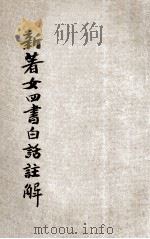 新著女四書白話註解
mtoou.info